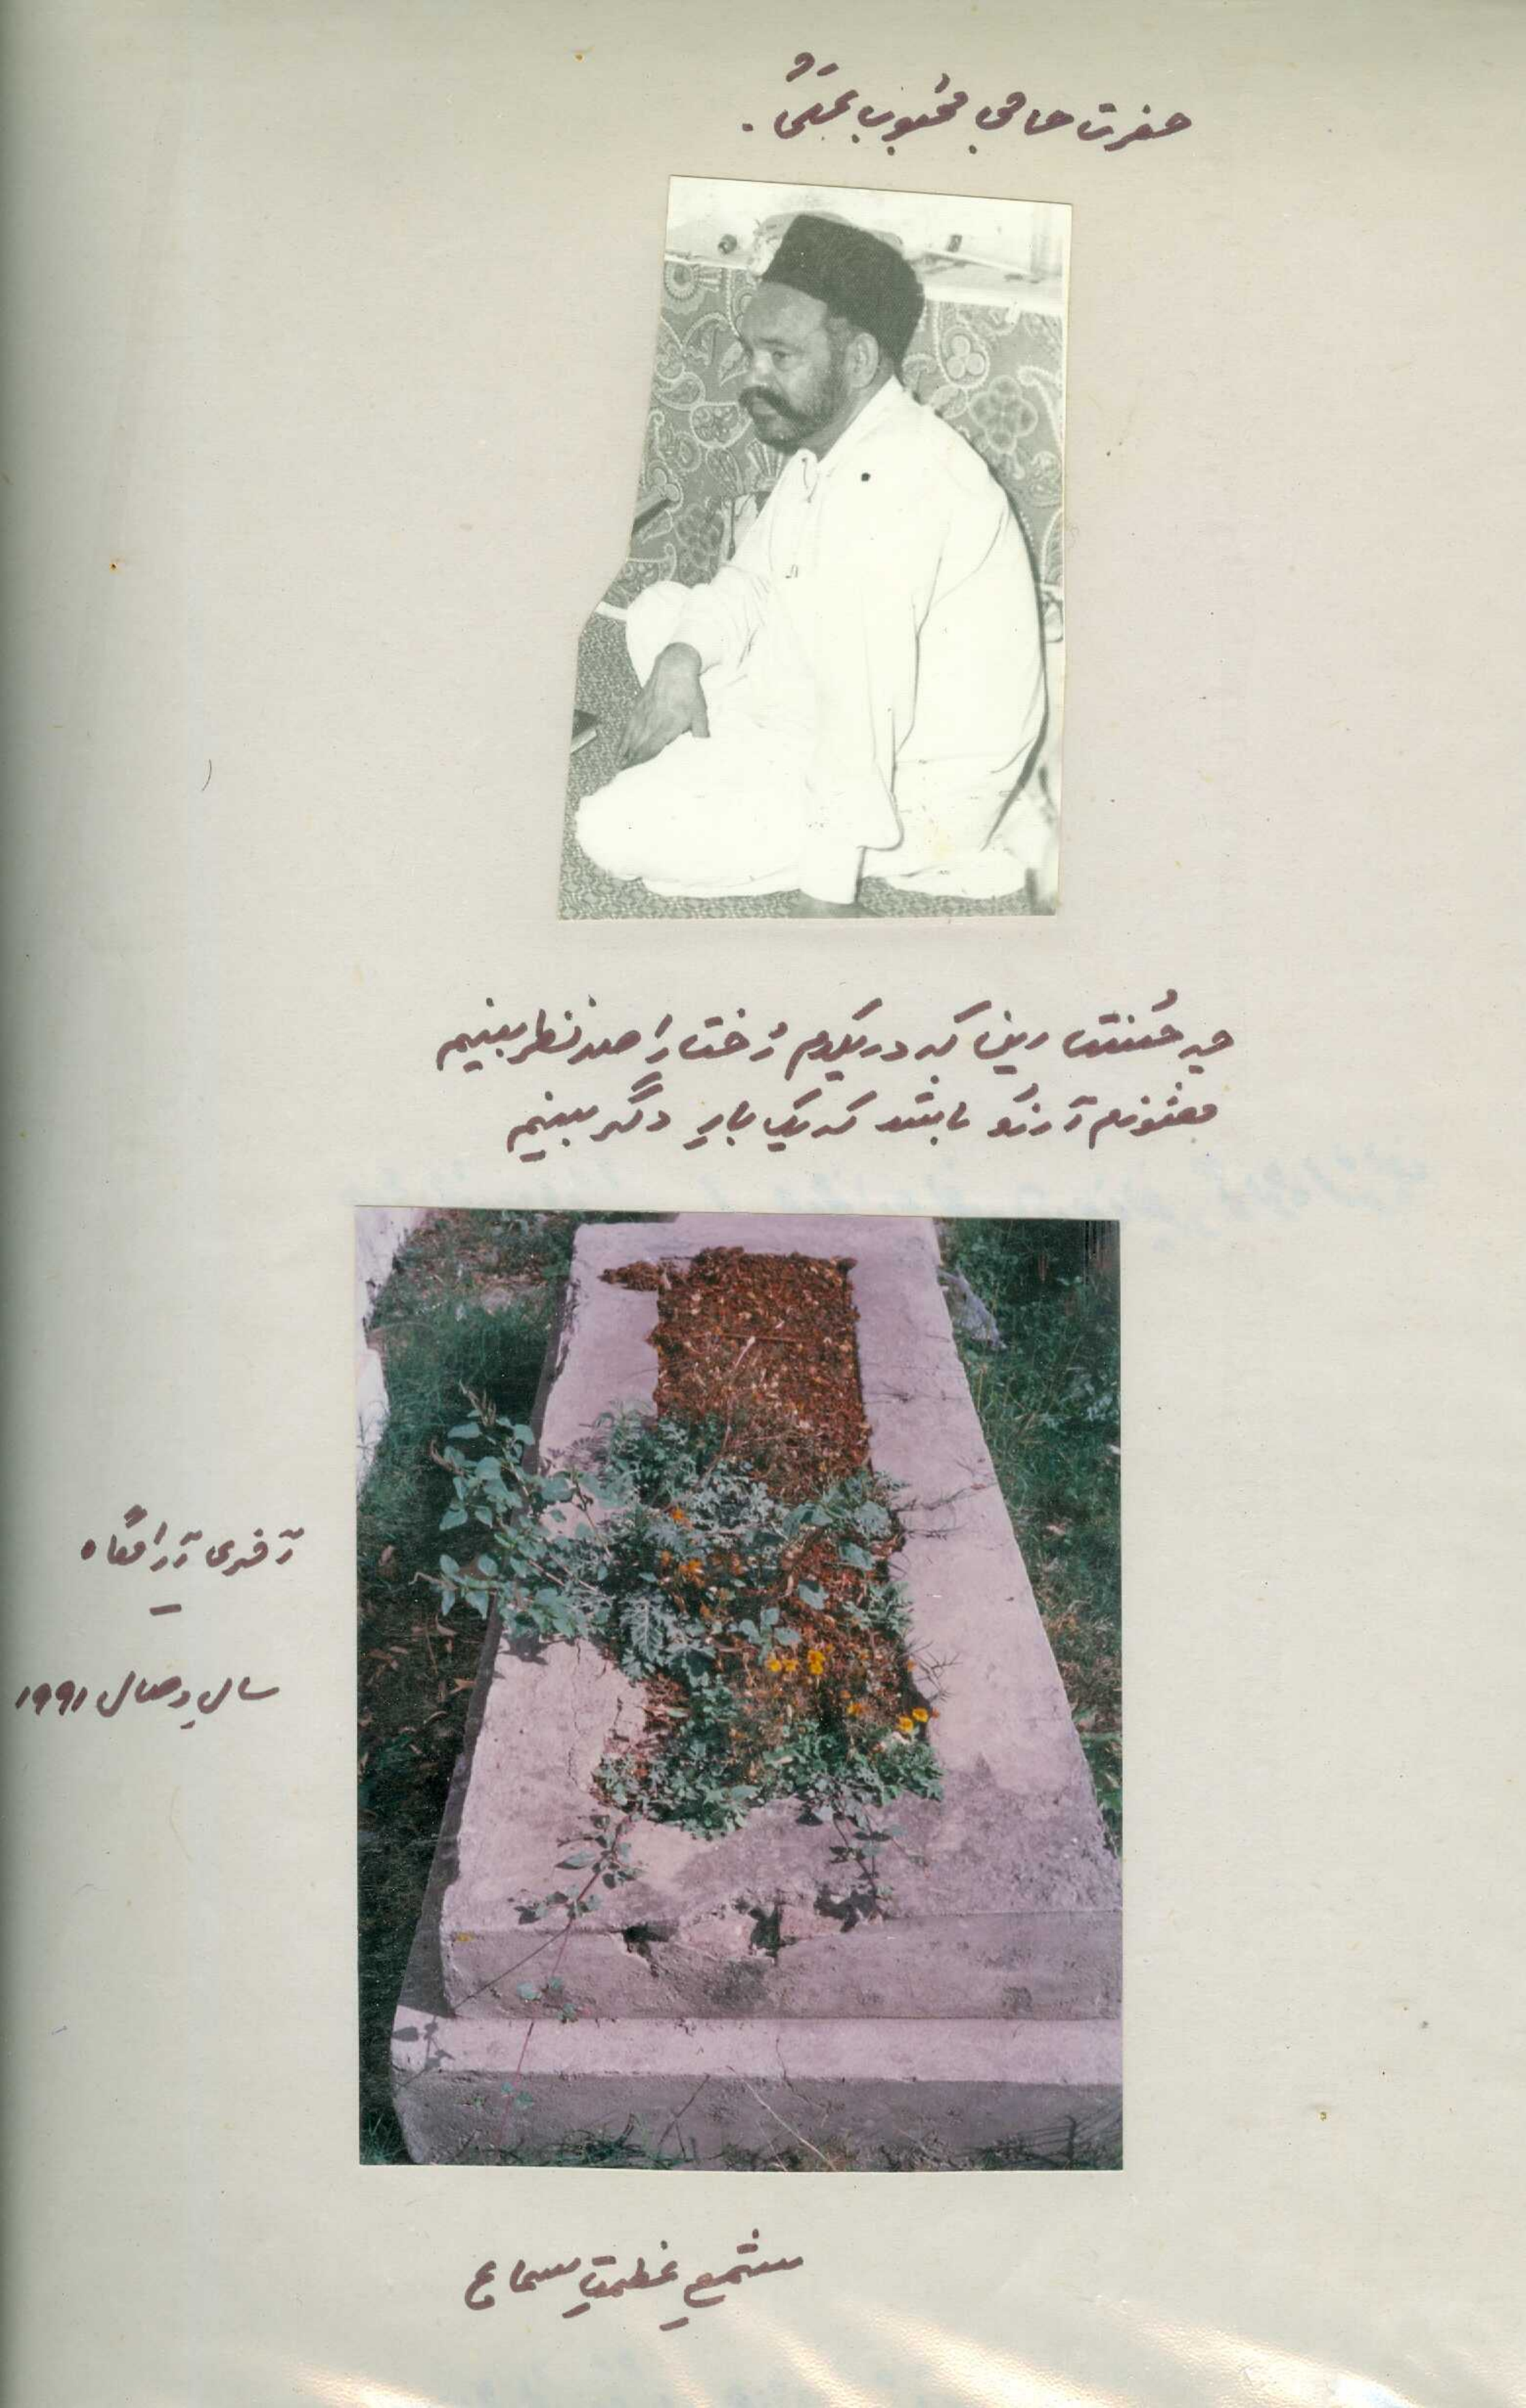 حضرت حاجی محبوب علیؒ
چہ حُسنست این کہ در یکدم رُخت را صد نظر بینم
هنوزم آرزُو باشد کہ یک بارِ دگر بینم
آخری آرامگاہ
سالِ وصال ۱۹۹۱
شمعِ عظمتِ سماع